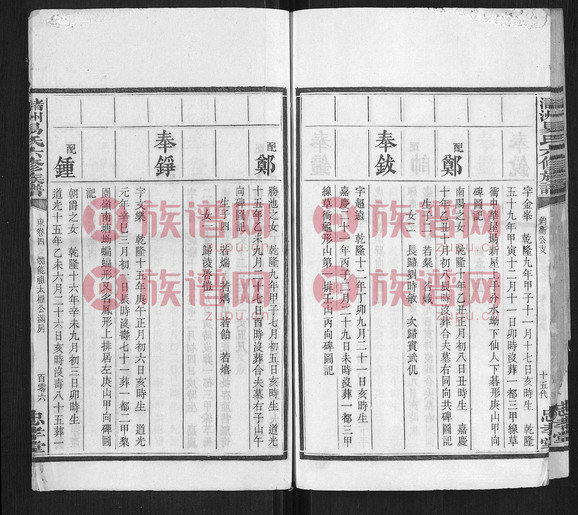 渚洲易氏六修族譜
鈞衡公支
十五代
忠孝堂
字金峯 乾隆九年甲子十一月十七日亥時生 乾隆
五十九年甲寅十二月十一日卯時沒葬一都三甲線草
衝中華星場新屋上手分水坳下仙人下碁形庚山甲向
碑圖記
配鄭
南陽之女 乾隆十年乙丑正月初八日丑時生 嘉慶
十年乙丑十月十八辰時沒葬合夫墓右同向共碑圖記
生子二 若粲 若燨
女二 長歸劉時敏 次歸賓武仉
奉鈸
字超遠 乾隆十二年丁卯九月二十一日亥時生
嘉慶二十一年丙子二月二十八日寅時沒葬一都三甲
線草衝龜形山第二排壬山丙向碑圖記
配鄭
勝池之女 乾隆九年甲子七月初五日亥時生 道光
十五年乙未九月二十七日酉時沒葬合夫墓右子山午
向碑圖記
生子四 若熵 若燏 若飴 若熺
女一 歸淩啓愷
奉錚
字文樂 乾隆十五年庚午正月初六日亥時生 道光
元年辛巳三月初一日辰時沒壽七十一葬一都二甲棃
園嶺南塘坳蝙蝠形又名鳳形上排居左庚山甲向碑圖
記
配鍾
朝爵之女 乾隆十六年辛未九月初三日卯時生
道光十五年乙未六月二十六日亥時沒壽八十五葬一
渚洲易氏六修族譜
東卷四
體乾祖太權公滿房
百零六
忠孝堂
族谱网